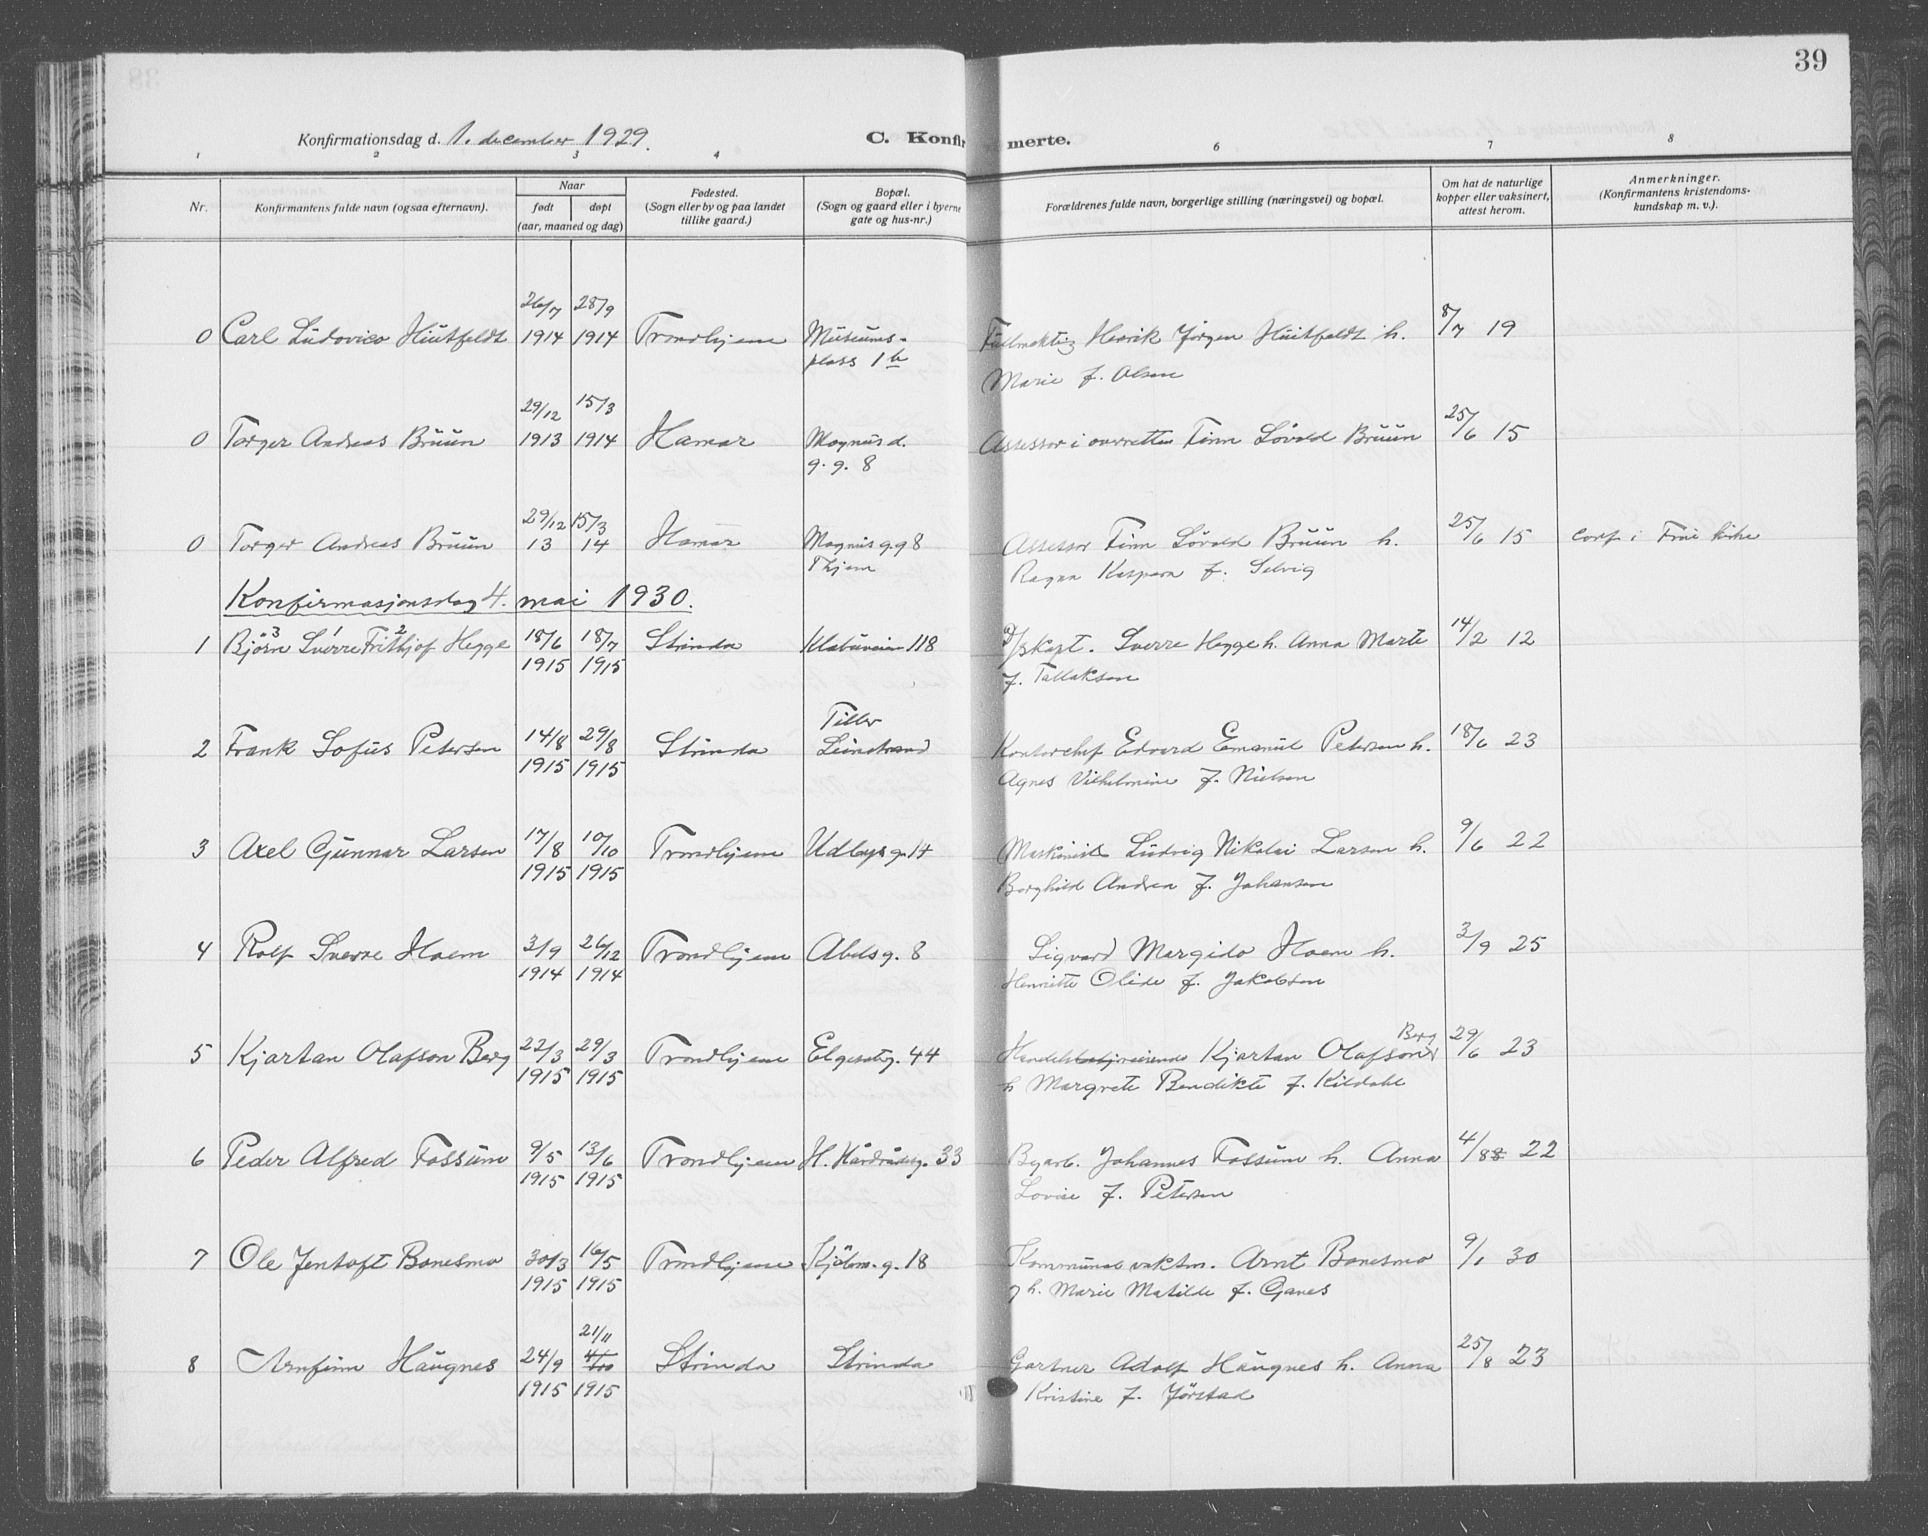 39
Konfirmationsdag d. 1. december 1929.
C. Konfirmerte.
1 2 3 4 6 7 8
Nr.
Konfirmantens fulde navn (ogsaa efternavn).
Naar
født døpt
(aar, maaned og dag)
Fødested.
(Sogn eller by og paa landet
tillike gaard.)
Bopæl.
(Sogn og gaard eller i byerne
gate og hus-nr.)
Forældrenes fulde navn, borgerlige stilling (næringsvei) og bopæl.
Om hat de naturlige
kopper eller vaksinert,
attest herom.
Anmerkninger.
(Konfirmantens kristendoms-
kundskap m. v.).
26/7 28/9
0 Carl Ludovico Huitfeldt 1914 1914 Trondhjem Museums- Fullmektig Henrik Jørgen Huitfeldt h. 8/7 19
plass 1b Marie f. Olsen
29/12 15/3
0 Torger Andreas Bruun 1913 1914 Hamar Magnus d. Assessor i overretten Finn Lövold Bruun 25/6 15
g. g. 8
29/12 15/3
0 Torger Andreas Bruun 13 14 Hamar Magnus g. g 8 Assessor Finn Lövold Bruun h. 25/6 15 conf i Frue kirke
Thjem Ragna Kaspara f. Selvig
Konfirmasjonsdag 4. mai 1930.
3 1 2
1 Björn Sverre Frithjof Hegge 18/6 18/7 Strinda Klæbuveien 118 D/skapt. Sverre Hegge h. Anna Marte 14/2 12
1915 1915 f. Tallaksen
Tiller
2 Frank Sofus Petersen 14/8 29/8 Strinda Lundstrand Kontorchef Edvard Emanuel Petersen h. 18/6 23
1915 1915 Agnes Vilhelmine f. Nielsen
3 Axel Gunnar Larsen 17/8 10/10 Trondhjem Udbyes g. 14 Maskinist Ludvig Nikolai Larsen h. 9/6 22
1915 1915 Borghild Andrea f. Johansen
4 Rolf Sverre Hoem 3/9 26/12 Trondhjem Abels g. 8 Sigvard Margido Hoem h. 3/9 25
1914 1914 Henriette Olide f. Jakobsen
Berg
5 Kjartan Olafson Berg 22/3 29/3 Trondhjem Elgesetg. 44 Handelsreisende Kjartan Olafson 29/6 23
1915 1915 h Margrete Bendikte f. Kildahl
6 Peder Alfred Fossum 9/5 13/6 Trondhjem H. Hårdrådesg. 33 Byarb. Johannes Fossum h. Anna 4/8 22
1915 1915 Lovise f. Petersen
7 Ole Jentoft Bonesmo 30/3 16/5 Trondhjem Kjölem. g. 18 Kommunal vaktm. Arnt Bonesmo 9/1 30
1915 1915 og h. Marie Matilde f. Ganes
21/11
8 Arnfinn Haugnes 24/9 Strinda Strinda Gartner Adolf Haugnes h. Anna 25/8 23
1915 1915 Kristine f. Jörstad